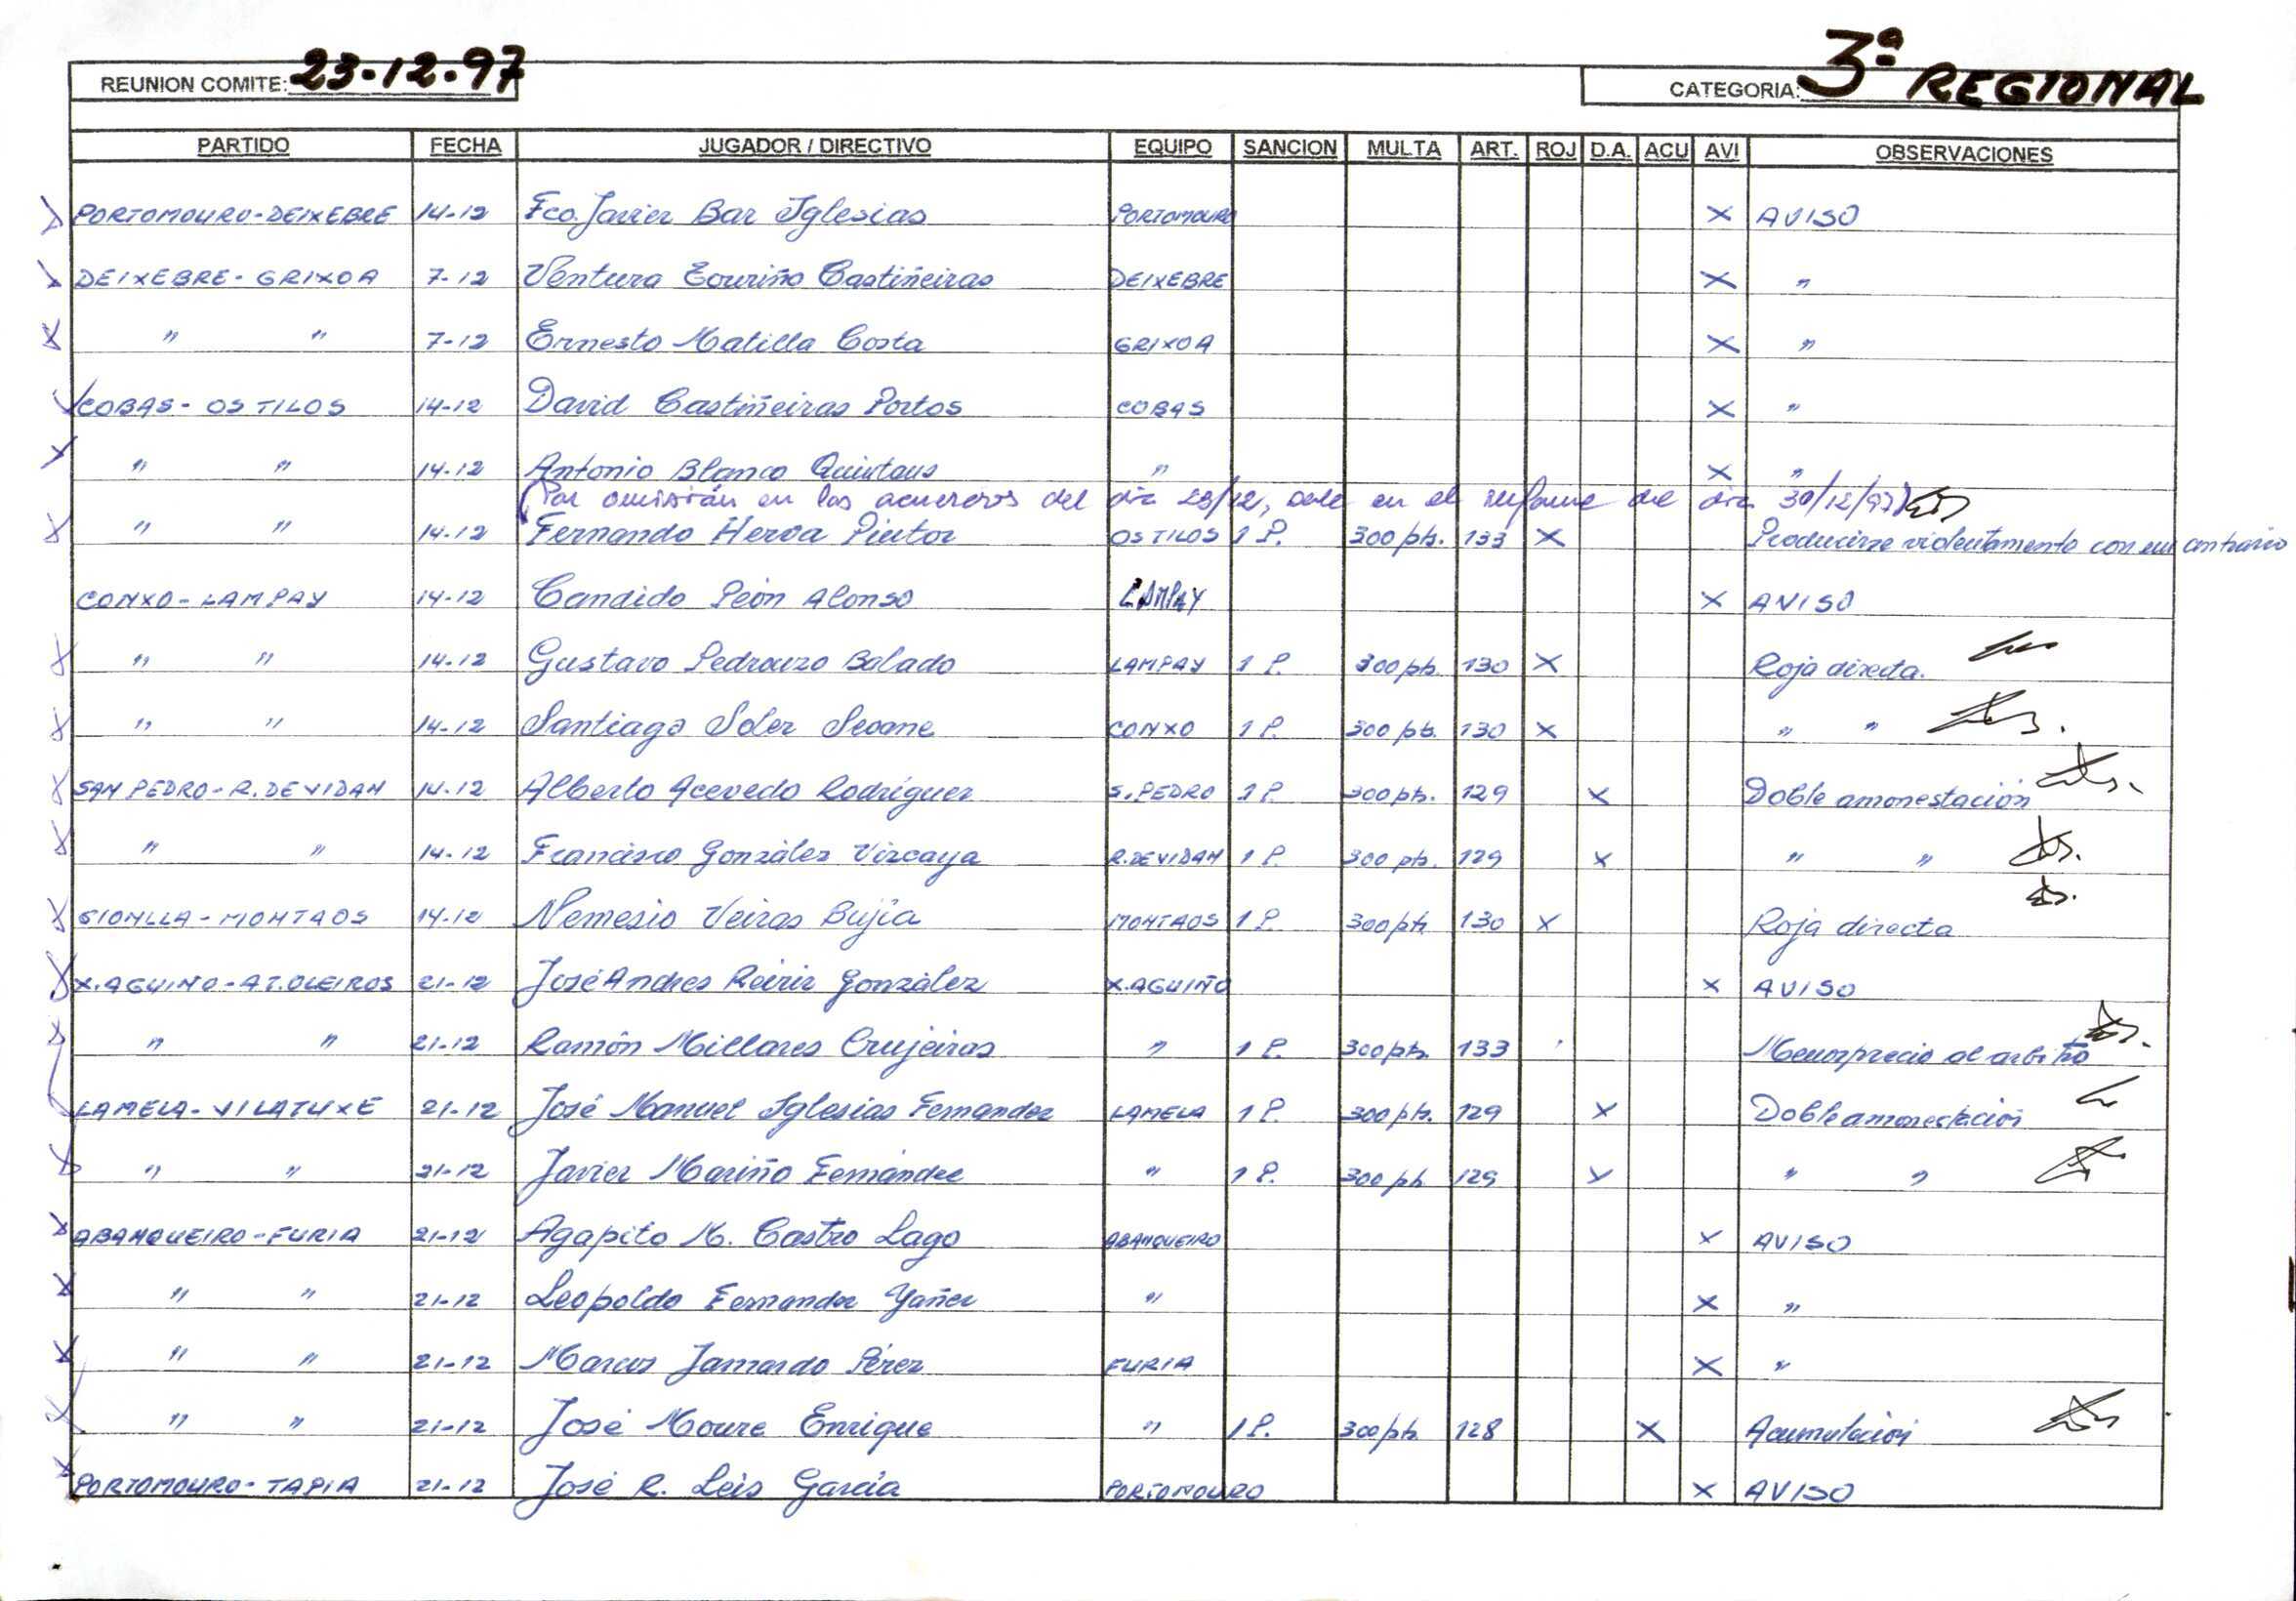 REUNION COMITE: 23-12-97 CATEGORIA: 3ª REGIONAL
PARTIDO FECHA JUGADOR / DIRECTIVO EQUIPO SANCION MULTA ART. ROJ D.A. ACU AVI OBSERVACIONES
PORTOMOURO-DEIXEBRE 14-12 Fco. Javier Bar Iglesias PORTOMOURO X AVISO
DEIXEBRE-GRIXOA 7-12 Ventura Touriño Castiñeiras DEIXEBRE X "
" " 7-12 Ernesto Matilla Costa GRIXOA X "
COBAS-OS TILOS 14-12 David Castiñeiras Portos COBAS X "
" " 14-12 Antonio Blanco Quintans " X "
(Por omisión en los acuerdos del día 23/12, sale en el informe del día 30/12/97)
" " 14-12 Fernando Herva Pintor OS TILOS 1 P. 300 pts. 133 X Producirse violentamente con un contrario
CONXO-LAMPAY 14-12 Candido Peón Alonso LAMPAY X AVISO
" " 14-12 Gustavo Pedrouzo Balado LAMPAY 1 P. 300 pts. 130 X Roja directa.
" " 14-12 Santiago Soler Seoane CONXO 1 P. 300 pts. 130 X " "
SAN PEDRO-R. DE VIDAN 14-12 Alberto Acevedo Rodríguez S. PEDRO 1 P. 300 pts. 129 X Doble amonestación
" " 14-12 Francisco González Vizcaya R. DE VIDAN 1 P. 300 pts. 129 X " "
SIONLLA-MONTAOS 14-12 Nemesio Veiras Bujía MONTAOS 1 P. 300 pts 130 X Roja directa
X. AGUIÑO-AT. OLEIROS 21-12 José Andres Reiriz González X. AGUIÑO X AVISO
" " 21-12 Ramón Millares Crujeiras " 1 P. 300 pts. 133 Menosprecio al arbitro
LAMELA-VILATUXE 21-12 José Manuel Iglesias Fernandez LAMELA 1 P. 300 pts. 129 X Doble amonestación
" " 21-12 Javier Mariño Fernández " 1 P. 300 pts 129 X " "
ABANQUEIRO-FURIA 21-12 Agapito M. Castro Lago ABANQUEIRO X AVISO
" " 21-12 Leopoldo Fernandez Yañez " X "
" " 21-12 Marcos Jamardo Pérez FURIA X "
" " 21-12 José Moure Enrique " 1 P. 300 pts. 128 X Acumulación
PORTOMOURO-TAPIA 21-12 José R. Leis García PORTOMOURO X AVISO